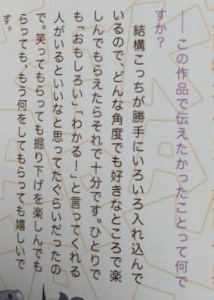 ──この作品で伝えたかったことって何で
すか?
結構こっちが勝手にいろいろ入れ込んで
いるので、どんな角度でも好きなところで楽
しんでもらえたらそれで十分です。ひとりで
も「おもしろい」「わかる!」と言ってくれる
人がいるといいなと思ってたぐらいだったの
で。笑ってもらっても掘り下げを楽しんでも
らっても、もう何をしてもらっても嬉しいで